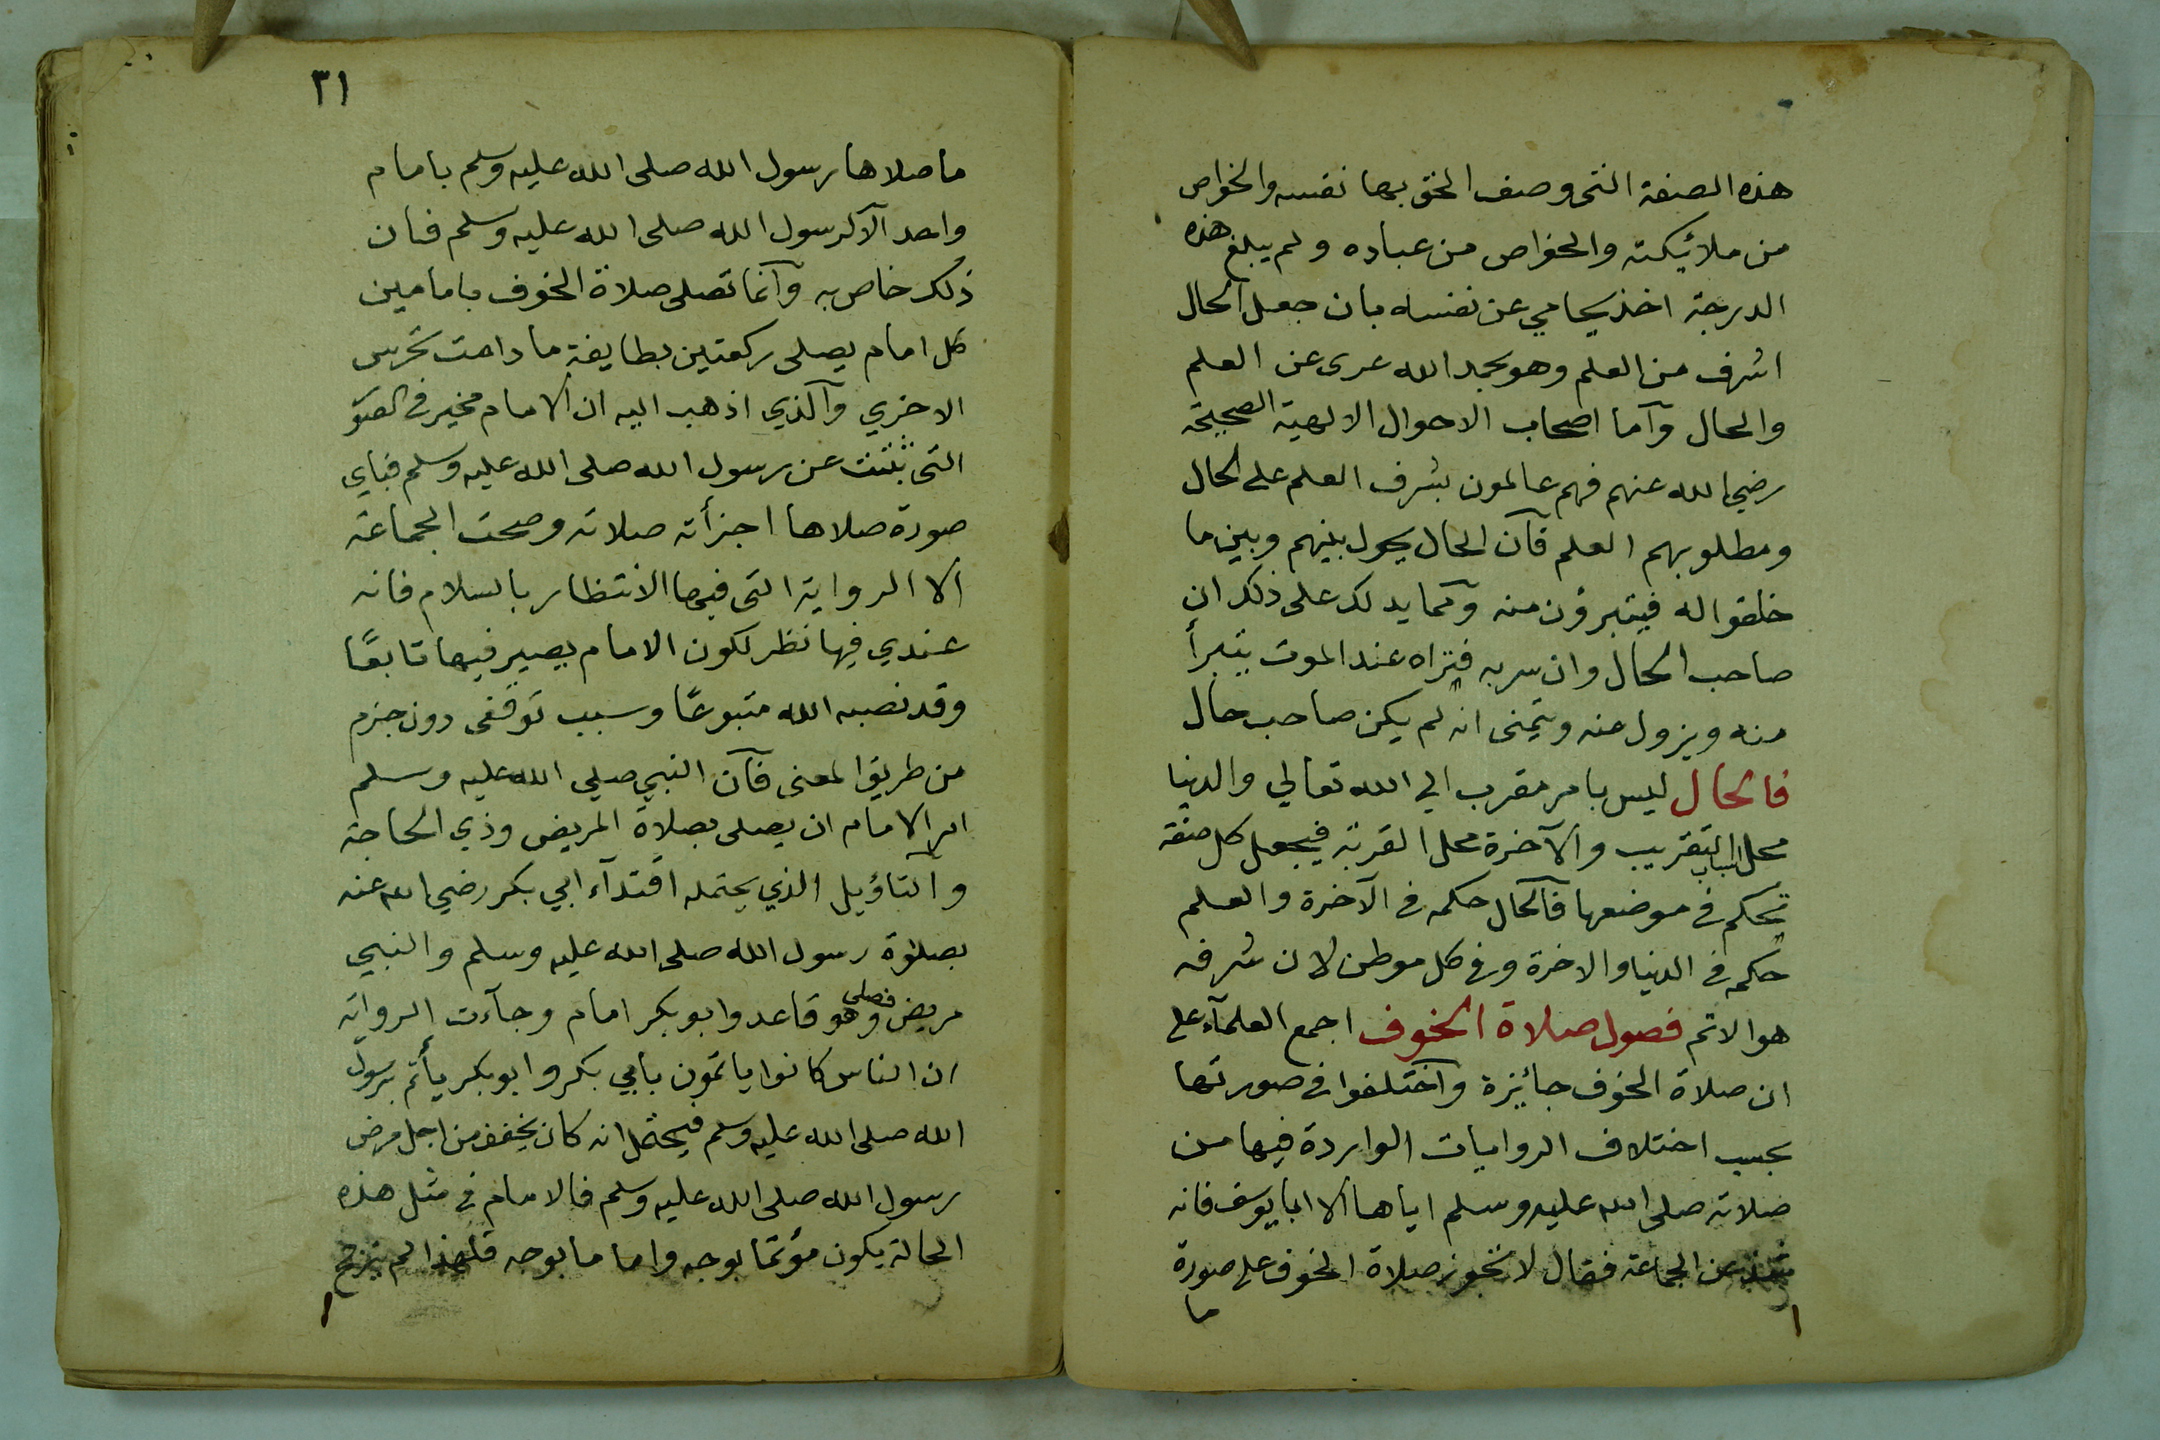 هذه الصفة التى وصف الحق بها نفسه والخواص
من ملائيكته والخواص من عباده ولم يبلغ هذه
الدرجة اخذ يحامي عن نفسه بان جعل الحال
اشرف من العلم وهو بحمد الله عرى عن العلم
والحال وآما اصحاب الاحوال الالهية الصحيحة
رضي الله عنهم فهم عالمون بشرف العلم على الحال
ومطلوبهم العلم فآن الحال يحول بينهم وبين ما
خلقوا له فيتبرؤن منه ومما يدلك على ذلك ان
صاحب الحال وان سر به فتراه عند الموت يتبرأ
منه ويزول عنه ويتمنى انه لم يكن صاحب حال
فالحال ليس بامر مقرب الي الله تعالي والدنيا
محل اسباب التقريب والآخرة محل القربة فيجعل كل صفة
تحكم في موضعها فآلحال حكمه في الآخرة والعلم
حكمه في الدنيا والاخرة وفي كل موطن لان شرفه
هو الاتم فصول صلاة الخوف اجمع العلمآء على
ان صلاة الخوف جائزة وآختلفوا في صورتها
بحسب اختلاف الروايات الواردة فيها من
صلاته صلى الله عليه وسلم اياها الا ابا يوسف فانه
شذ عن الجماعة فقال لا تجوز صلاة الخوف على صورة
ما
٣١
ما صلاها رسول الله صلى الله عليه وسلم بامام
واحد آلا لرسول الله صلى الله عليه وسلم فان
ذلك خاص به وآنما تصلى صلاة الخوف بامامين
كل امام يصلى ركعتين بطايفة ما دامت تحرس
الاخري وآلذي اذهب اليه ان الامام مخير في الصور
التى ثبتت عن رسول الله صلى الله عليه وسلم فباي
صورة صلاها اجزأته صلاته وصحت الجماعة
الا الرواية التى فيها الانتظار بالسلام فانه
عندي فيها نظر لكون الامام يصير فيها تابعًا
وقد نصبه الله متبوعًا وسبب توقفى دون جزم
من طريق المعنى فآن النبي صلي الله عليه وسلم
امر الامام ان يصلى بصلاة المريض وذي الحاجة
والتاؤيل الذي يحتمله اقتدآء ابي بكر رضي الله عنه
بصلوٰة رسول الله صلى الله عليه وسلم والنبي
مريض فصلي وهو قاعد وابو بكر امام وجآءت الرواية
ان الناس كانوا ياتمون بابي بكر وابو بكر يأتم برسول
الله صلى الله عليه وسلم فيحتمل انه كان يخفف من اجل مرض
رسول الله صلى الله عليه وسلم فالامام في مثل هذه
الحالة يكون مؤتما بوجه واماما بوجه فلهذا لم يترجح